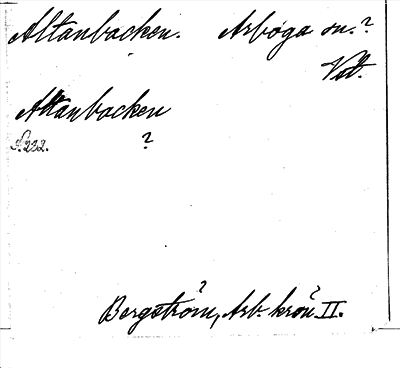 Altanbacken. Arboga sn.?
Vstl.
Altanbacken
S. 222. ?
Bergström, Arb. krön. II.